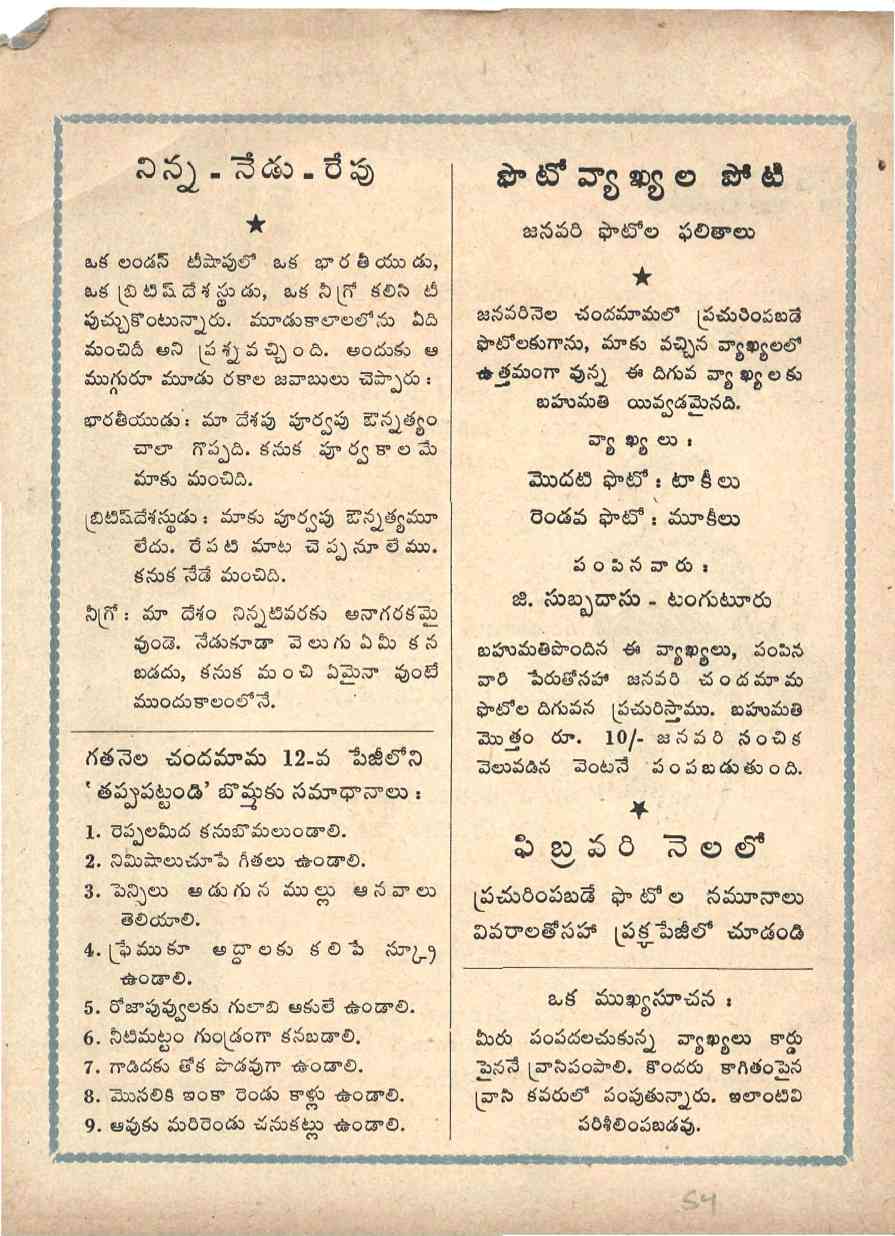 నిన్న - నేడు - రేపు
★
ఒక లండన్ టీషాపులో ఒక భారతీయుడు,
ఒక బ్రిటిష్ దేశస్థుడు, ఒక నీగ్రో కలిసి టీ
పుచ్చుకొంటున్నారు. మూడుకాలాలలోను ఏది
మంచిదీ అని ప్రశ్నవచ్చింది. అందుకు ఆ
ముగ్గురూ మూడు రకాల జవాబులు చెప్పారు :
భారతీయుడు : మా దేశపు పూర్వపు ఔన్నత్యం
చాలా గొప్పది. కనుక పూర్వకాలమే
మాకు మంచిది.
బ్రిటిష్‌దేశస్థుడు : మాకు పూర్వపు ఔన్నత్యమూ
లేదు. రేపటి మాట చెప్పనూలేము.
కనుక నేడే మంచిది.
నీగ్రో : మా దేశం నిన్నటివరకు అనాగరకమై
వుండె. నేడుకూడా వెలుగు ఏమీ కన
బడదు, కనుక మంచి ఏమైనా వుంటే
ముందుకాలంలోనే.
గతనెల చందమామ 12-వ పేజీలోని
‘తప్పుపట్టండి’ బొమ్మకు సమాధానాలు :
1. రెప్పలమీద కనుబొమలుండాలి.
2. నిమిషాలుచూపే గీతలు ఉండాలి.
3. పెన్సిలు అడుగున ముల్లు ఆనవాలు
తెలియాలి.
4. ఫ్రేముకూ అద్దాలకు కలిపే స్క్రూ
ఉండాలి.
5. రోజాపువ్వులకు గులాబి ఆకులే ఉండాలి.
6. నీటిమట్టం గుండ్రంగా కనబడాలి.
7. గాడిదకు తోక పొడవుగా ఉండాలి.
8. మొసలికి ఇంకా రెండు కాళ్లు ఉండాలి.
9. ఆవుకు మరిరెండు చనుకట్లు ఉండాలి.
ఫొటోవ్యాఖ్యల పోటీ
జనవరి ఫొటోల ఫలితాలు
★
జనవరినెల చందమామలో ప్రచురింపబడే
ఫొటోలకుగాను, మాకు వచ్చిన వ్యాఖ్యలలో
ఉత్తమంగా వున్న ఈ దిగువ వ్యాఖ్యలకు
బహుమతి యివ్వడమైనది.
వ్యాఖ్యలు :
మొదటి ఫొటో : టాకీలు
రెండవ ఫొటో : మూకీలు
పంపినవారు :
జి. సుబ్బదాసు - టంగుటూరు
బహుమతిపొందిన ఈ వ్యాఖ్యలు, పంపిన
వారి పేరుతోనహా జనవరి చందమామ
ఫొటోల దిగువన ప్రచురిస్తాము. బహుమతి
మొత్తం రూ. 10/- జనవరి నంచిక
వెలువడిన వెంటనే పంపబడుతుంది.
★
ఫిబ్రవరి నెలలో
ప్రచురింపబడే ఫొటోల నమూనాలు
వివరాలతోసహా ప్రక్కపేజీలో చూడండి
ఒక ముఖ్యసూచన :
మీరు పంపదలచుకున్న వ్యాఖ్యలు కార్డు
పైననే వ్రాసిపంపాలి. కొందరు కాగితంపైన
వ్రాసి కవరులో పంపుతున్నారు. ఇలాంటివి
పరిశీలింపబడవు.
54